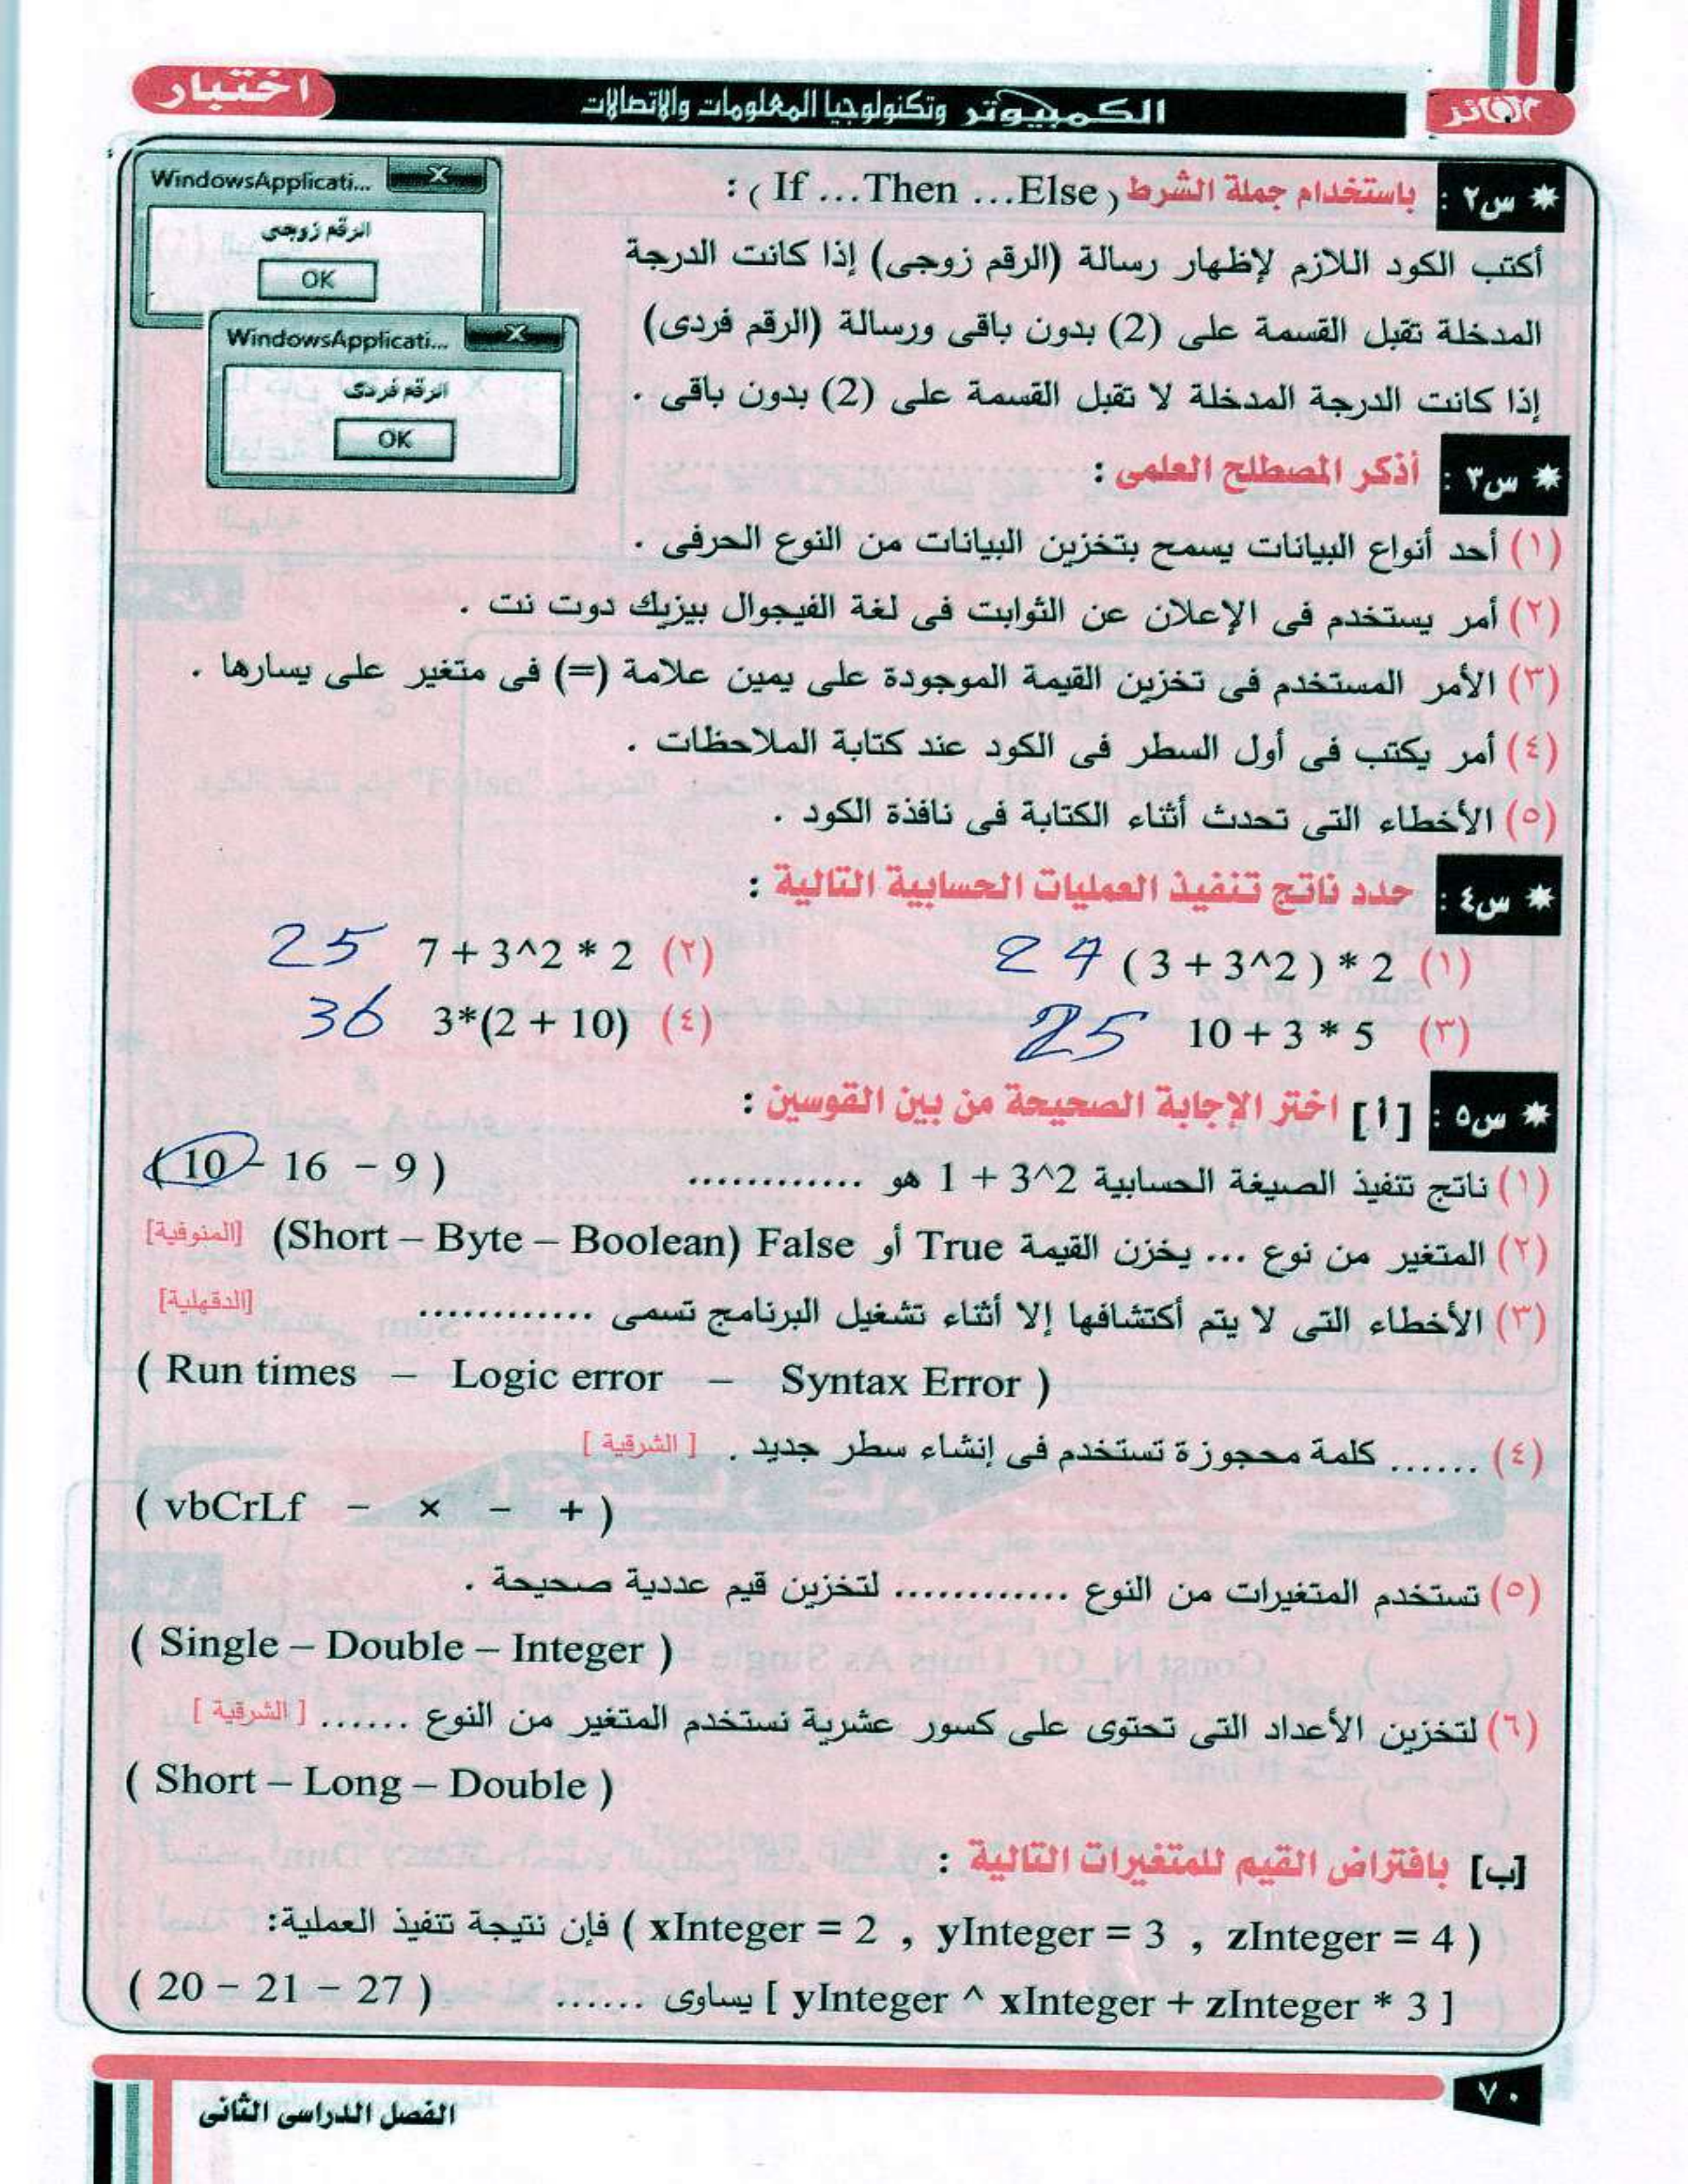 الفائز
الكمبيوتر وتكنولوجيا المعلومات والاتصالات
اختبار
* س٢ : باستخدام جملة الشرط ( If …Then …Else ) :
أكتب الكود اللازم لإظهار رسالة (الرقم زوجى) إذا كانت الدرجة
المدخلة تقبل القسمة على (2) بدون باقى ورسالة (الرقم فردى)
إذا كانت الدرجة المدخلة لا تقبل القسمة على (2) بدون باقى .
WindowsApplicati... X
الرقم زوجى
OK
WindowsApplicati... X
الرقم فردى
OK
* س٣ : أذكر المصطلح العلمى :
(١) أحد أنواع البيانات يسمح بتخزين البيانات من النوع الحرفى .
(٢) أمر يستخدم فى الإعلان عن الثوابت فى لغة الفيجوال بيزيك دوت نت .
(٣) الأمر المستخدم فى تخزين القيمة الموجودة على يمين علامة (=) فى متغير على يسارها .
(٤) أمر يكتب فى أول السطر فى الكود عند كتابة الملاحظات .
(٥) الأخطاء التى تحدث أثناء الكتابة فى نافذة الكود .
* س٤ : حدد ناتج تنفيذ العمليات الحسابية التالية :
(١) ( 3 + 3^2 ) * 2 24 (٢) 7 + 3^2 * 2 25
(٣) 10 + 3 * 5 25 (٤) 3*(2 + 10) 36
* س٥ : [أ] اختر الإجابة الصحيحة من بين القوسين :
(١) ناتج تنفيذ الصيغة الحسابية 1 + 3^2 هو ............ ( 10 – 16 – 9 )
(٢) المتغير من نوع ... يخزن القيمة True أو False (Short – Byte – Boolean) [المنوفية]
(٣) الأخطاء التى لا يتم أكتشافها إلا أثناء تشغيل البرنامج تسمى ............ [الدقهلية]
( Run times – Logic error – Syntax Error )
(٤) ...... كلمة محجوزة تستخدم فى إنشاء سطر جديد . [ الشرقية ]
( vbCrLf – × – + )
(٥) تستخدم المتغيرات من النوع ............ لتخزين قيم عددية صحيحة .
( Single – Double – Integer )
(٦) لتخزين الأعداد التى تحتوى على كسور عشرية نستخدم المتغير من النوع ...... [ الشرقية ]
( Short – Long – Double )
[ب] بافتراض القيم للمتغيرات التالية :
( xInteger = 2 , yInteger = 3 , zInteger = 4 ) فإن نتيجة تنفيذ العملية:
[ yInteger ^ xInteger + zInteger * 3 ] يساوى ...... ( 20 – 21 – 27 )
٧٠
الفصل الدراسى الثانى